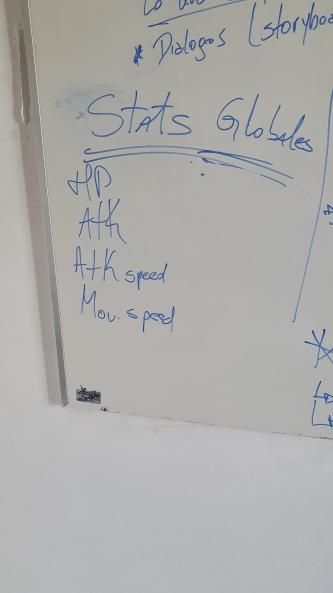 * Dialogos (storyboa
Stats Globales
HP
Atk
Atk speed
Mov. speed